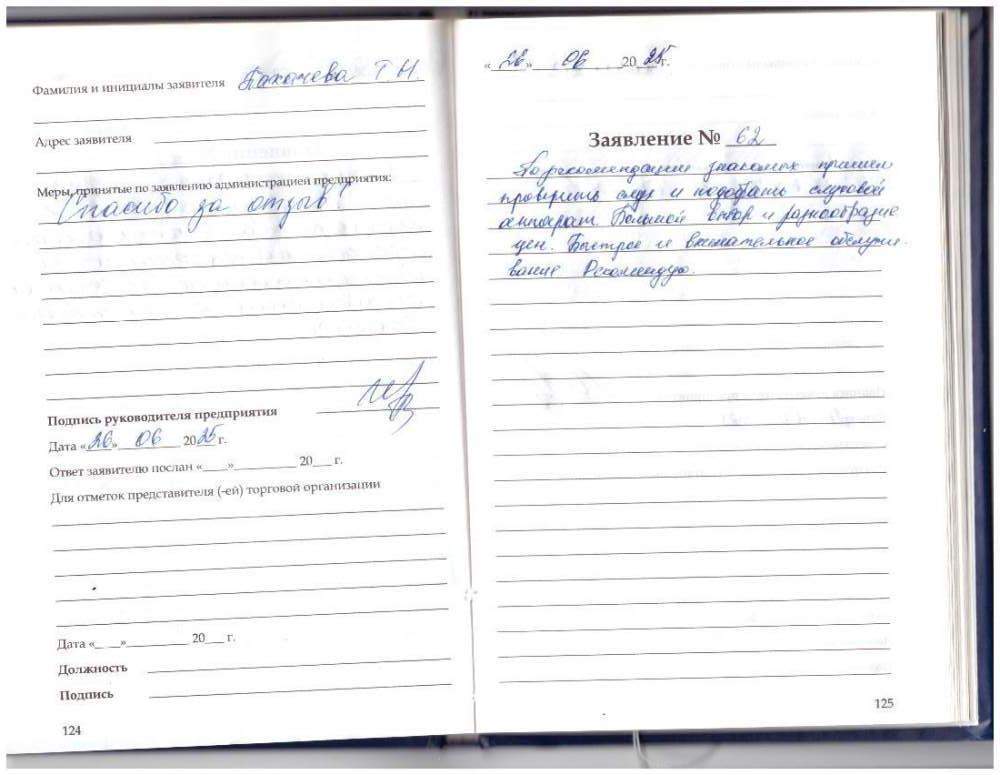 Фамилия и инициалы заявителя Т Н
Адрес заявителя
Меры, принятые по заявлению администрацией предприятия:
Спасибо за отзыв!
Подпись руководителя предприятия
Дата «26» 06 2025 г.
Ответ заявителю послан «____»__________ 20___ г.
Для отметок представителя (-ей) торговой организации
Дата «_ __»__________ 20___ г.
Должность
Подпись
124
«26» 06 2025г.
Заявление № 62
По рекомендации знакомых пришел
проверить слух и подобрать слуховой
аппарат. Большой выбор и разнообразие
цен. Быстрое и внимательное обслужи-
вание Рекомендую.
125